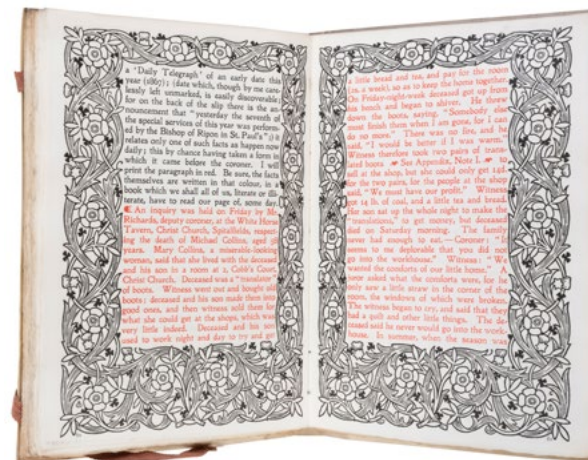 a 'Daily Telegraph' of an early date this
year (1867); (date which, though by me care-
lessly left unmarked, is easily discoverable;
for on the back of the slip there is the an-
nouncement that "yesterday the seventh of
the special services of this year was perform-
ed by the Bishop of Ripon in St. Paul's";) it
relates only one of such facts as happen now
daily; this by chance having taken a form in
which it came before the coroner. I will
print the paragraph in red. Be sure, the facts
themselves are written in that colour, in a
book which we shall all of us, literate or illi-
terate, have to read our page of, some day.
An inquiry was held on Friday by Mr.
Richards, deputy coroner, at the White Horse
Tavern, Christ Church, Spitalfields, respect-
ing the death of Michael Collins, aged 58
years. Mary Collins, a miserable-looking
woman, said that she lived with the deceased
and his son in a room at 2, Cobb's Court,
Christ Church. Deceased was a "translator"
of boots. Witness went out and bought old
boots; deceased and his son made them into
good ones, and then witness sold them for
what she could get at the shops, which was
very little indeed. Deceased and his son
used to work night and day to try and get
a little bread and tea, and pay for the room
(2s. a week), so as to keep the home together.
On Friday-night-week deceased got up from
his bench and began to shiver. He threw
down the boots, saying, "Somebody else
must finish them when I am gone, for I can
do no more." There was no fire, and he
said, "I would be better if I was warm."
Witness therefore took two pairs of trans-
lated boots See Appendix, Note I. to
sell at the shop, but she could only get 14d.
for the two pairs, for the people at the shop
said, "We must have our profit." Witness
got 14 lb. of coal, and a little tea and bread.
Her son sat up the whole night to make the
"translations," to get money, but deceased
died on Saturday morning. The family
never had enough to eat.—Coroner: "It
seems to me deplorable that you did not
go into the workhouse." Witness: "We
wanted the comforts of our little home." A
juror asked what the comforts were, for he
only saw a little straw in the corner of the
room, the windows of which were broken.
The witness began to cry, and said that they
had a quilt and other little things. The de-
ceased said he never would go into the work-
house. In summer, when the season was